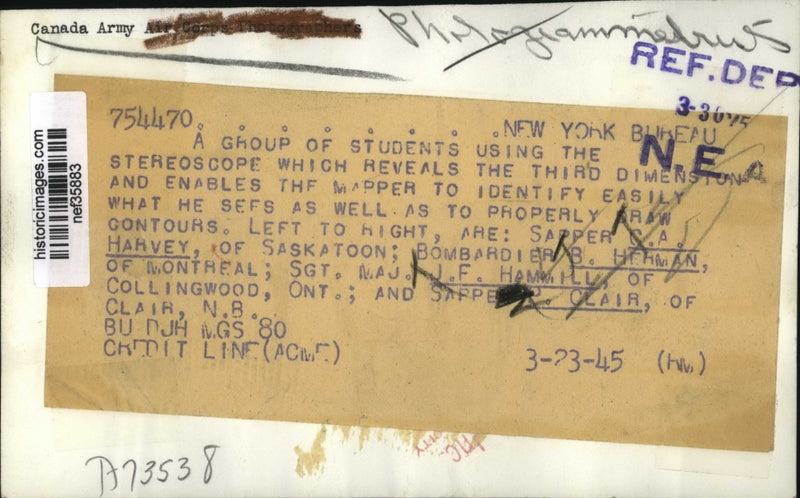 Canada Army Air Corps Photographers
REF. DEP
3-30
N.E.A
historicimages.com
nef35883
754470. . . . . . . . .NEW YORK BUREAU
A GROUP OF STUDENTS USING THE
STEREOSCOPE WHICH REVEALS THE THIRD DIMENSION
AND ENABLES THE MAPPER TO IDENTIFY EASILY
WHAT HE SEES AS WELL AS TO PROPERLY DRAW
CONTOURS. LEFT TO RIGHT, ARE: SAPPER C.A.
HARVEY, OF SASKATOON; BOMBARDIER B. HERMAN,
OF MONTREAL; SGT. MAJ. J.F. HAMMILL, OF
COLLINGWOOD, ONT.; AND SAPPER CLAIR, OF
CLAIR, N.B.
BU DJH MGS 80
CREDIT LINE(ACME) 3-23-45 (RM)
A73538